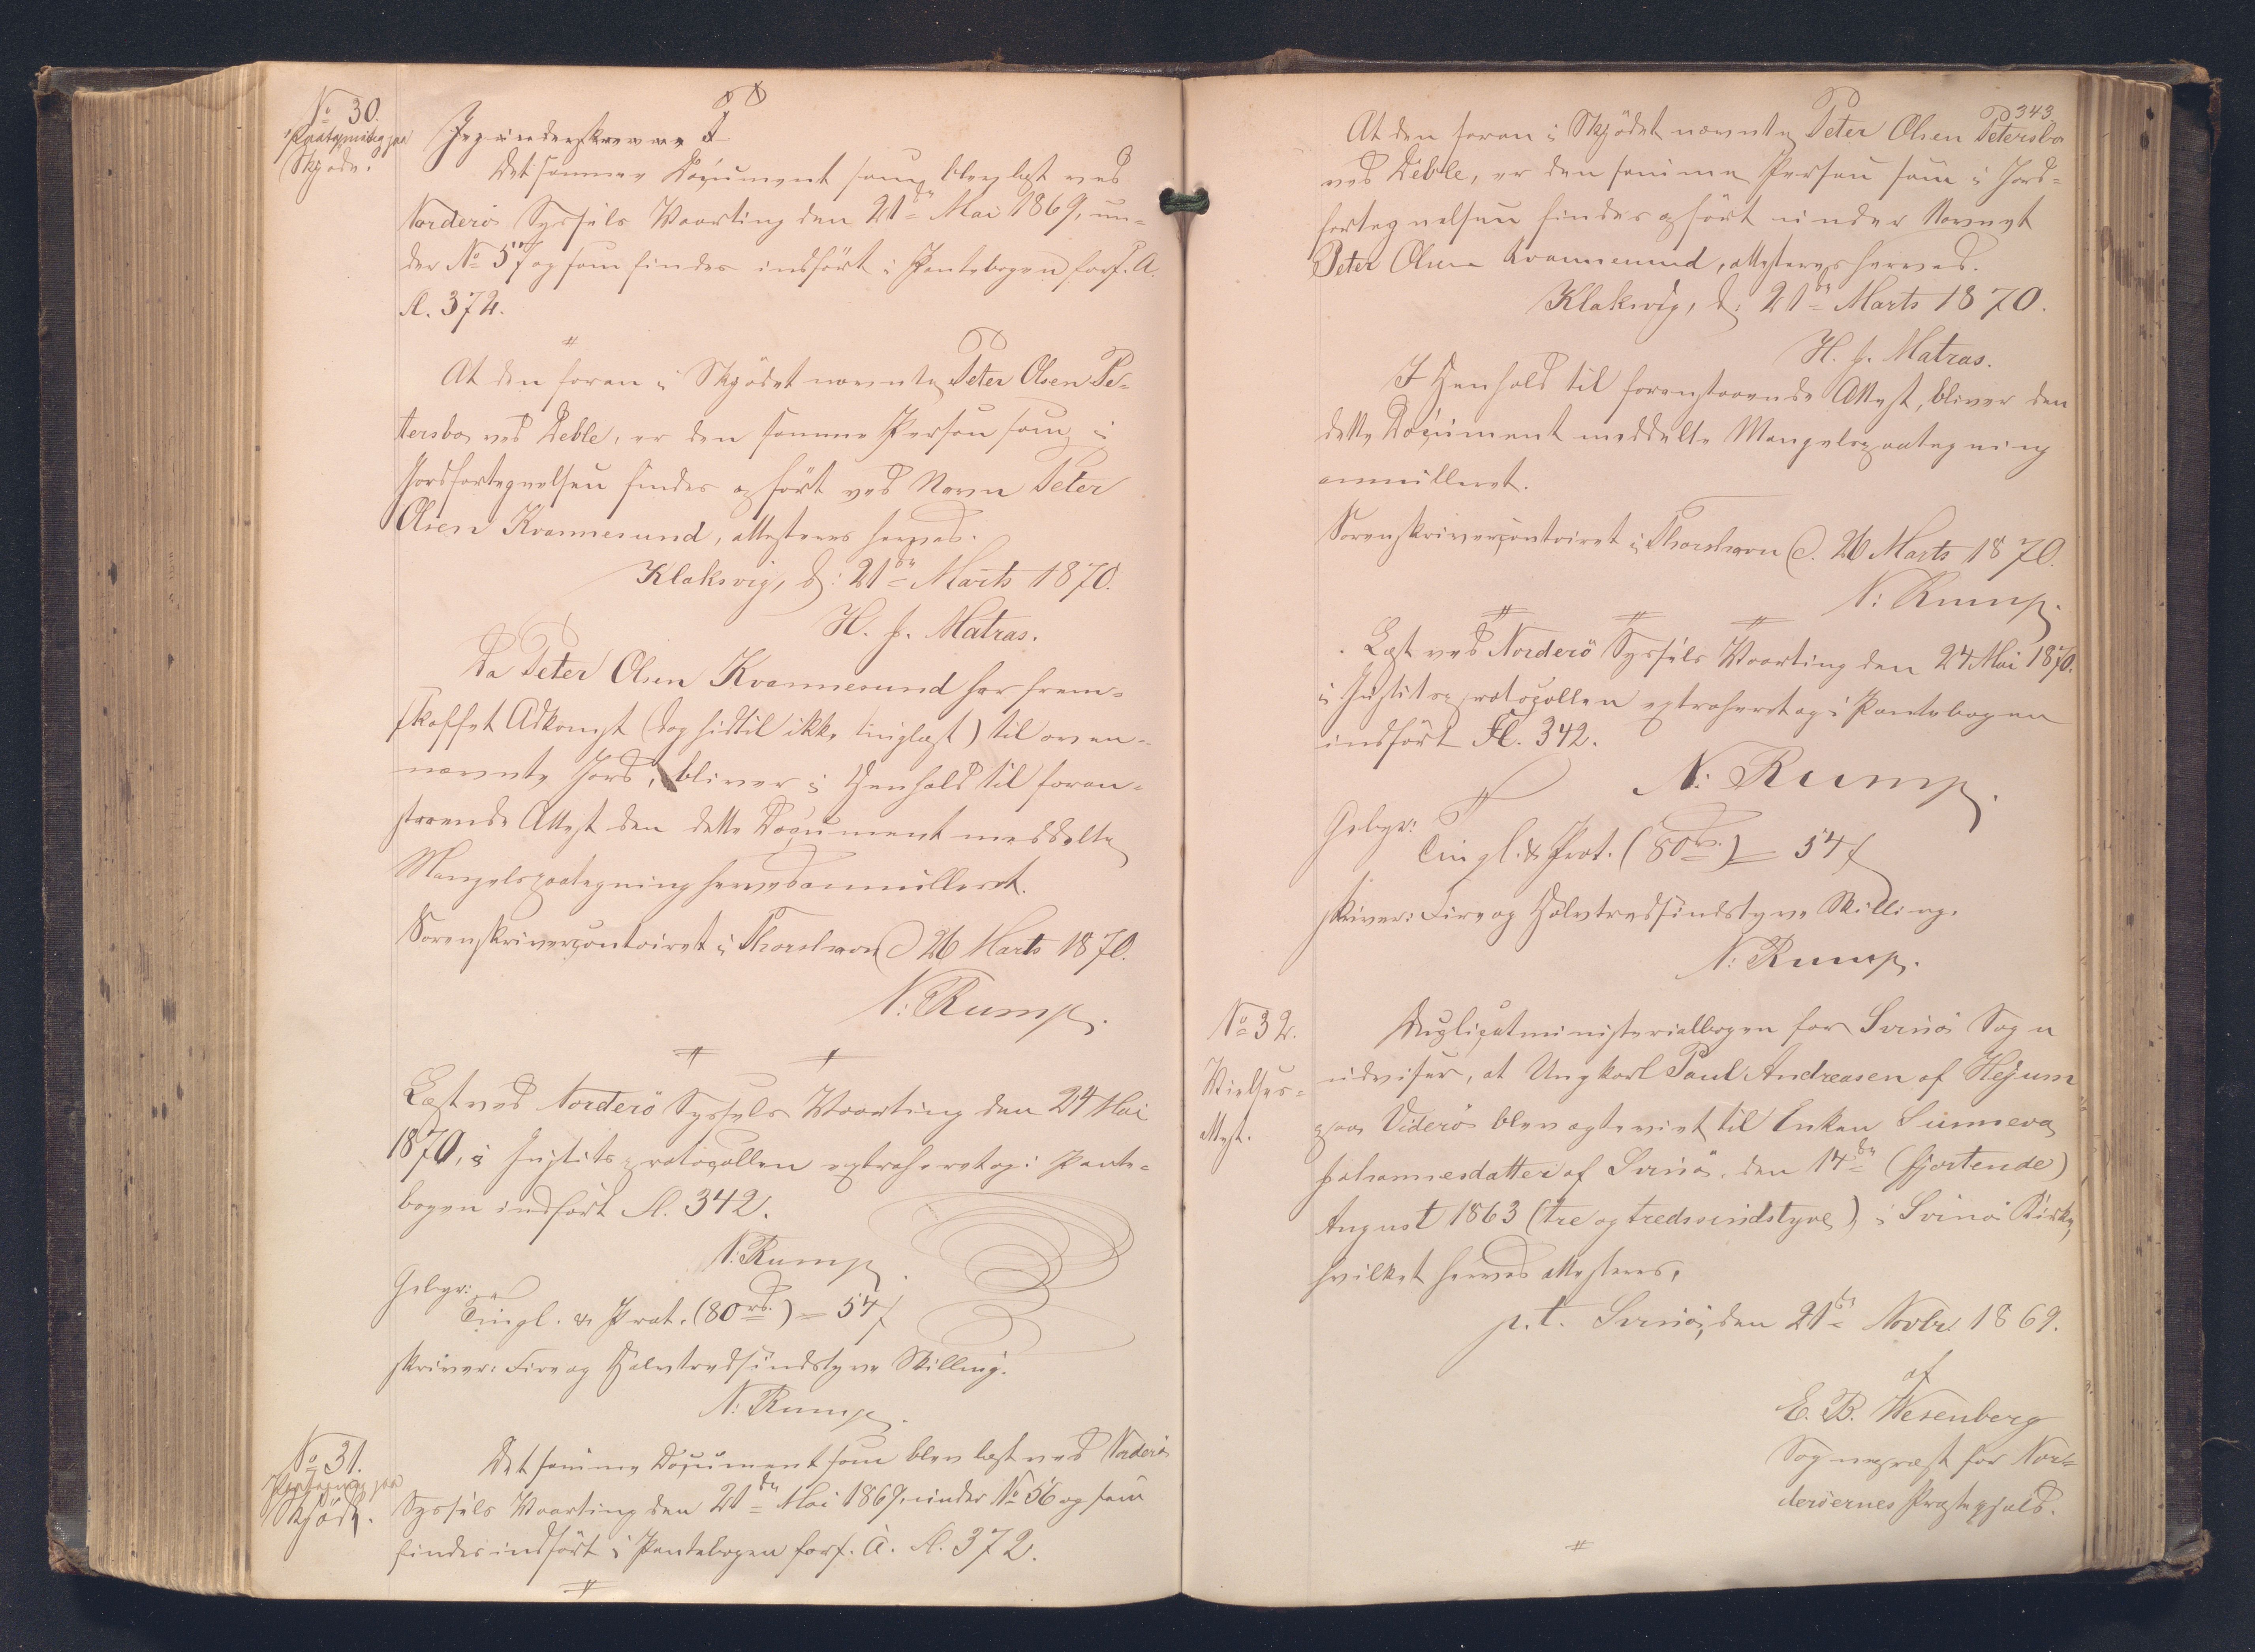 No 30.
Paategning paa
Skjøde.
Jeg underskrevne I
Det samme Document som blev læst ved
Norderö Syssels Vaarting den 21de Mai 1869, un-
der No 57 og som findes indført i Pantebogen forf. A.
fl. 372.
At den foran i Skjødet nævnte Peter Olsen Pe-
tersbo ved Deble, er den samme Person som i
Jordfortegnelsen findes opført ved Navn Peter
Olsen Kvannesund, attesteres herved.
Klaksvig, d: 21de Marts 1870.
H. J. Matras.
Da Peter Olsen Kvannesund har frem-
skaffet Adkomst (dog hidtil ikke tinglæst) til oven-
nævnte Jord, bliver i Henhold til foran-
staaende Attest den dette Document meddelte
Mangelspaategning herved annulleret.
Sorenskrivercontoiret i Thorshavn d. 26 Marts 1870.
N: Rump.
Læst ved Norderö Syssels Vaarting den 24 Mai
1870, i Justitsprotocollen extraheret og i Pante-
bogen indført fl. 342.
N: Rump
Gebyr:
Tingl. & Prot. (80 rd.) = 54 f
skriver: Fire og Halvtredsindstyve Skilling.
N: Rump.
No 31.
Paategning paa
Skjöde.
Det samme Document som blev læst ved Norderö
Syssels Vaarting den 21de Mai 1869, under No 56 og som
findes indført i Pantebogen forf. A. fl. 372.
343
At den foran i Skjödet nævnte Peter Olsen Petersbo
ved Deble, er den samme Person som i Jord-
fortegnelsen findes opført under Navnet
Peter Olsen Kvannesund, attesteres herved.
Klaksvig, d: 21de Marts 1870.
H. J. Matras.
I Henhold til foranstaaende Attest, bliver den
dette Document meddelte Mangelspaategning
annulleret.
Sorenskrivercontoiret i Thorshavn d. 26 Marts 1870.
N: Rump.
Læst ved Norderö Syssels Vaarting den 24 Mai 1870.
i Justitsprotocollen extraheret og i Pantebogen
indført Fl. 342.
N: Rump.
Gebyr:
Tingl. & Prot. (80 rd.) = 54 f
skriver: Fire og Halvtredsindstyve Skilling.
N: Rump.
No 32.
Vielses-
attest.
Duplicatministerialbogen for Svinö Sogn
udviser, at Ungkarl Paul Andreasen af Hejum
paa Viderö blev ægteviet til Enken Sunneva
Johannesdatter af Svinö, den 14de (fjortende)
August 1863 (tre og tredssindstyve), i Svinö Kirke,
hvilket herved attesteres.
p.t. Svinö, den 21de Novbr. 1869.
af
E. B. Wesenberg
Sognepræst for Nor-
derøernes Præstegjeld.